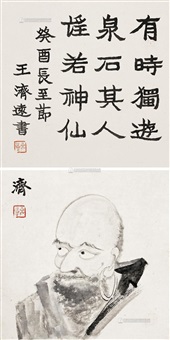 有時獨遊
泉石其人
怳若神仙
癸酉長至節
王濟遠書
濟